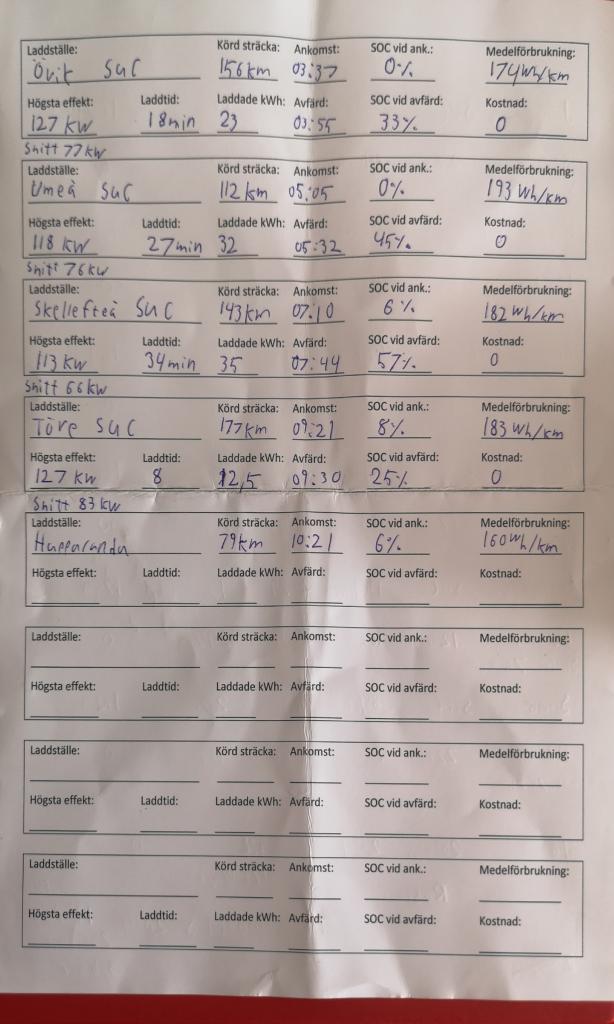 Laddställe: Körd sträcka: Ankomst: SOC vid ank.: Medelförbrukning:
Övik SuC 156km 03:37 0% 174Wh/km
Högsta effekt: Laddtid: Laddade kWh: Avfärd: SOC vid avfärd: Kostnad:
127 kW 18min 23 03:55 33% 0
Snitt 77kW
Laddställe: Körd sträcka: Ankomst: SOC vid ank.: Medelförbrukning:
Umeå SuC 112 km 05:05 0% 193 Wh/km
Högsta effekt: Laddtid: Laddade kWh: Avfärd: SOC vid avfärd: Kostnad:
118 kW 27min 32 05:32 45% 0
Snitt 76kW
Laddställe: Körd sträcka: Ankomst: SOC vid ank.: Medelförbrukning:
Skellefteå SuC 143km 07:10 6% 182 Wh/km
Högsta effekt: Laddtid: Laddade kWh: Avfärd: SOC vid avfärd: Kostnad:
113 kW 34min 35 07:44 57% 0
Snitt 66 kW
Laddställe: Körd sträcka: Ankomst: SOC vid ank.: Medelförbrukning:
Töre SuC 177km 09:21 8% 183 Wh/km
Högsta effekt: Laddtid: Laddade kWh: Avfärd: SOC vid avfärd: Kostnad:
127 kW 8 12,5 09:30 25% 0
Snitt 83 kW
Laddställe: Körd sträcka: Ankomst: SOC vid ank.: Medelförbrukning:
Happaranda 79km 10:21 6% 160Wh/km
Högsta effekt: Laddtid: Laddade kWh: Avfärd: SOC vid avfärd: Kostnad:
Laddställe: Körd sträcka: Ankomst: SOC vid ank.: Medelförbrukning:
Högsta effekt: Laddtid: Laddade kWh: Avfärd: SOC vid avfärd: Kostnad:
Laddställe: Körd sträcka: Ankomst: SOC vid ank.: Medelförbrukning:
Högsta effekt: Laddtid: Laddade kWh: Avfärd: SOC vid avfärd: Kostnad:
Laddställe: Körd sträcka: Ankomst: SOC vid ank.: Medelförbrukning:
Högsta effekt: Laddtid: Laddade kWh: Avfärd: SOC vid avfärd: Kostnad: